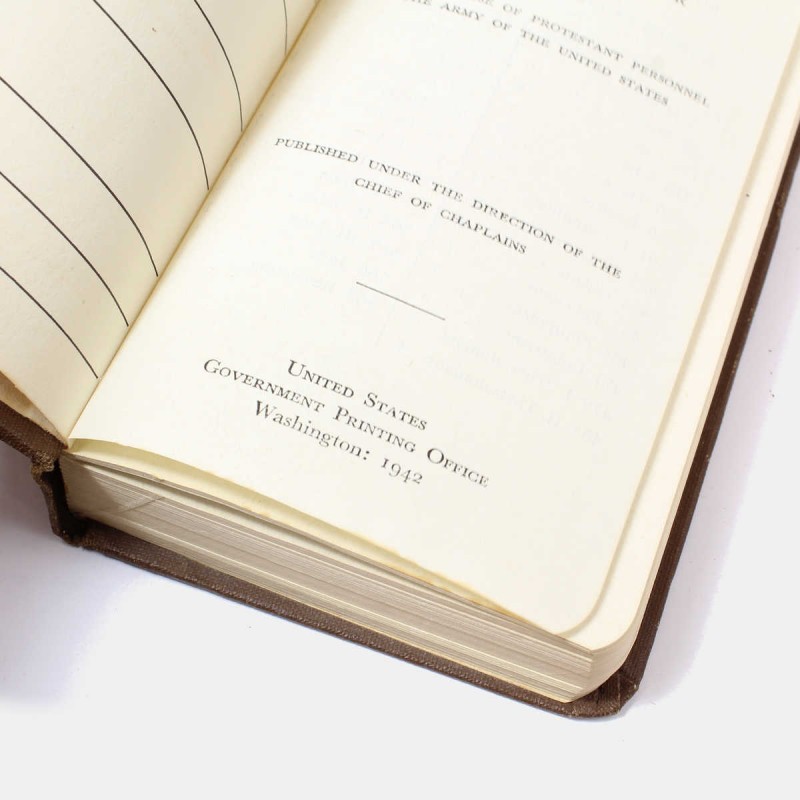 OF PROTESTANT PERSONNEL
ARMY OF THE UNITED STATES
PUBLISHED UNDER THE DIRECTION OF THE
CHIEF OF CHAPLAINS
UNITED STATES
GOVERNMENT PRINTING OFFICE
Washington: 1942